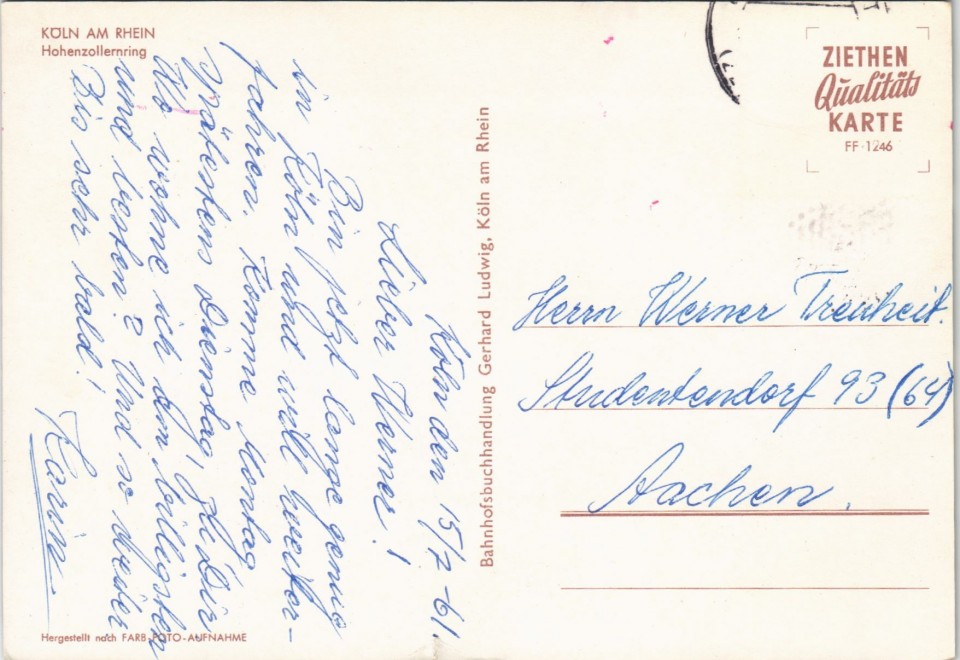 KÖLN AM RHEIN
Hohenzollernring
Köln den 15/7 -61.
Lieber Werner!
Bin jetzt lange genug
in Köln und will weiter-
fahren. Komme Montag
spätestens Dienstag, zu Dir
Wo wohne ich am billigsten
und besten? Und so weiter
Bis sehr bald!
Karin
Hergestellt nach FARB-FOTO-AUFNAHME
Bahnhofsbuchhandlung Gerhard Ludwig, Köln am Rhein
ZIETHEN
Qualitäts
KARTE
FF 1246
Herrn Werner Treuheit.
Studentendorf 93 (64)
Aachen.